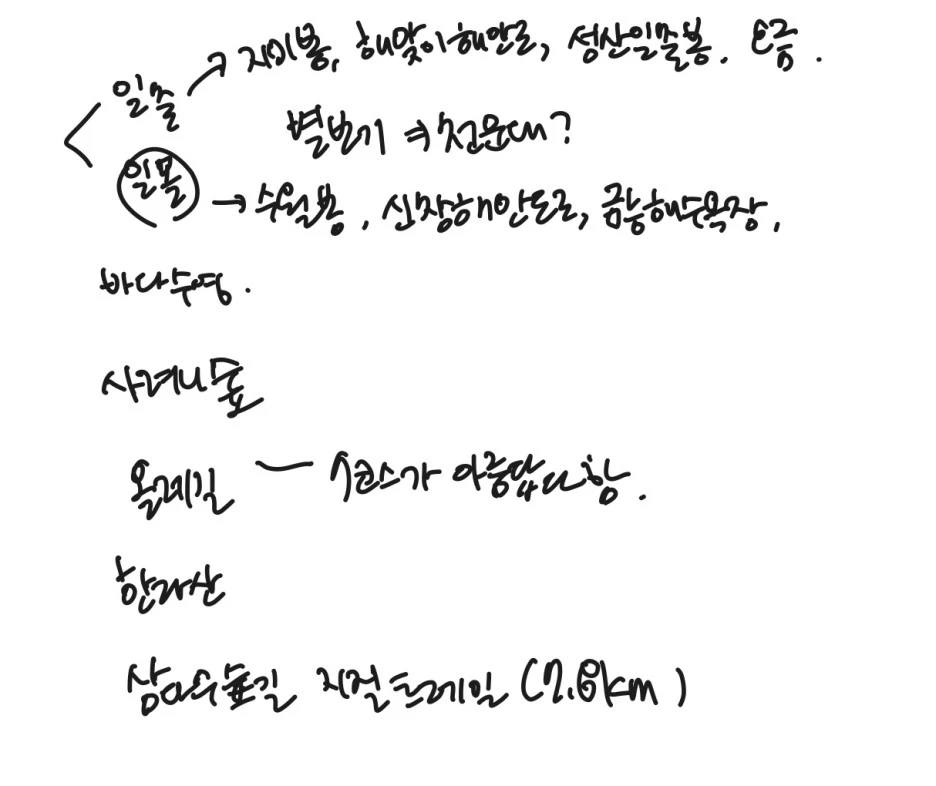 일출 → 지미봉, 해맞이해안로, 성산일출봉, 오름.
별보기 → 천문대?
일몰 → 수월봉, 신창해안도로, 금능해수욕장,
바다수영.
사려니숲
올레길 — 7코스가 아름답다함.
한라산
삼다수숲길 지질트레일